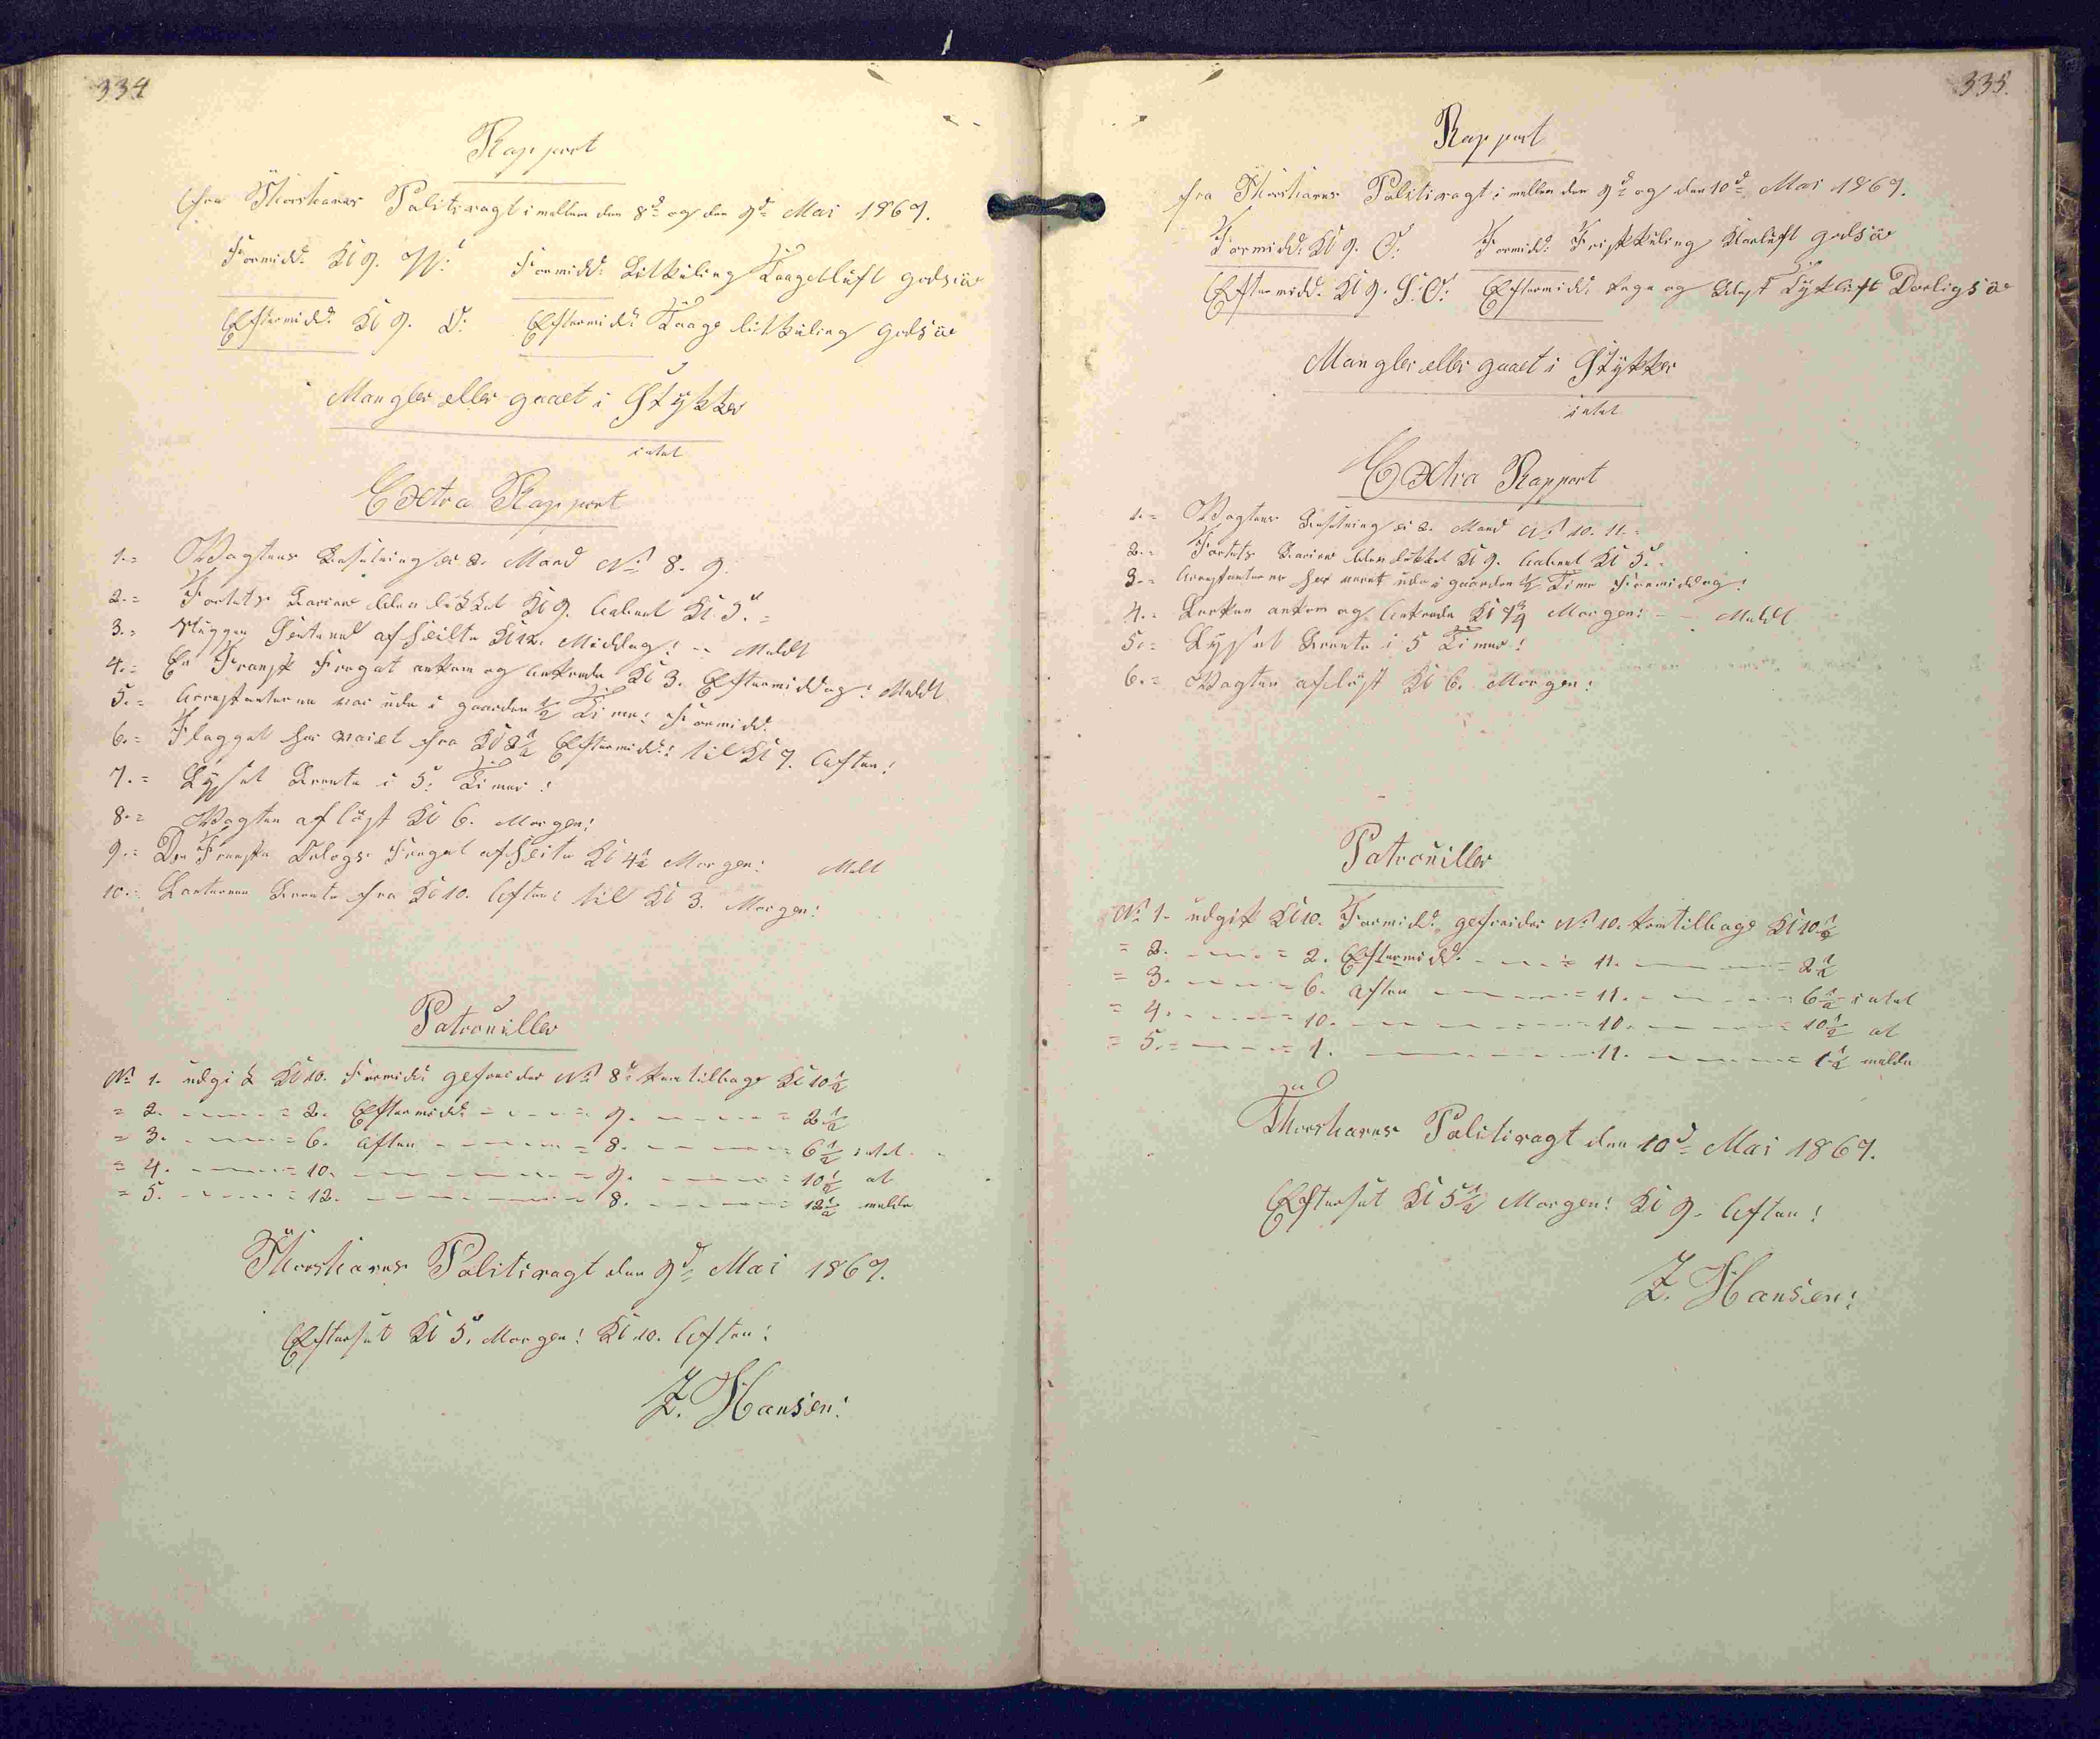 334
Rapport
fra Thorshavns Politivagt imellem den 8d og den 9d Mai 1867.
Formidd: Kl 9. Formidd: Litkuling Taagetluft godsöe
Eftermidd: Kl 9. O: Eftermidd: Taage litkuling godsöe
Mangler eller gaaet i Stykker
intet
Extra Rapport
1. = Vagtens Besetning er 2. Mand No 8. 9.
2. = Fortets Barierer blev lukket Kl 9. Aabent Kl. 5. =
3. = Sluppen afseilte Kl 12. Middag! -- Meldt
4. = En Fransk Fregat ankom og Ankrede Kl 3. Eftermiddag! Meldt
5. = Arrestanterne var ude i gaarden 1/2 Time! Formidd.
6. = Flagget har vaiet fra Kl 2 1/2 Eftermidd! til Kl 7. Aften!
7. = Lyset Brente i 5: Timer!
8. = Vagten aflöst Kl 6. Morgen!
9. = Den Franske Orlogs Fregat afseilte Kl 4 1/2 Morgen: Melt
10. = Lanternen Brente fra Kl 10. Aften: til Kl 3. Morgen!
Patrouiller
No 1. udgik Kl 10. Formidd: gefreider No 8 kom tilbage Kl 10 1/2
= 2. - - - = 2. Eftermidd: - - - = 9. - - - = 2 1/2
= 3. - - - = 6. Aften - - - = 8. - - - = 6 1/2 intet
= 4. - - - = 10. - - - = 9. - - - = 10 1/2 at
= 5. - - - = 12. - - - = 8. - - - = 12 1/2 melde
Thorshavns Politivagt den 9d Mai 1867.
Efterset Kl 5. Morgen! Kl 10. Aften!
Z. Hansen!
335.
Rapport
fra Thorshavns Politivagt imellem den 9d og den 10d Mai 1867.
Formidd: Kl 9. O: Formidd: Friskkuling Klarluft godsöe
Eftermidd: Kl 9. S:O: Eftermidd: Regn og Blæst Tykluft Dorligsöe
Mangler eller gaaet i Stykker
intet
Extra Rapport
1. = Vagtens Besetning er 2. Mand No 10. 11. =
2. = Fortets Barierer blev lukket Kl 9. Aabent Kl 5.
3. = Arrestanterne har veret ude i gaarden 1/2 Time Formiddag!
4. = ankom og Ankrede Kl 7 3/4 Morgen! - - Meldt
5. = Lyset Brente i 5 Timer!
6. = Vagten aflöst Kl 6. Morgen!
Patrouiller
No 1. udgik Kl 10. Formidd: gefreider No 10. kom tilbage Kl 10 1/2
= 2. - - - = 2. Eftermidd - - - = 11. - - - = 2 1/2
= 3. - - - = 6. Aften - - - = 11. - - - = 6 1/2 intet
= 4. - - - = 10. - - - = 10. - - - = 10 1/2 at
= 5. - - - = 1. - - - 11. - - - = 1 1/2 melde
Thorshavns Politivagt den 10d Mai 1867.
Efterset Kl 5 1/2 Morgen! Kl 9. Aften!
Z. Hansen!